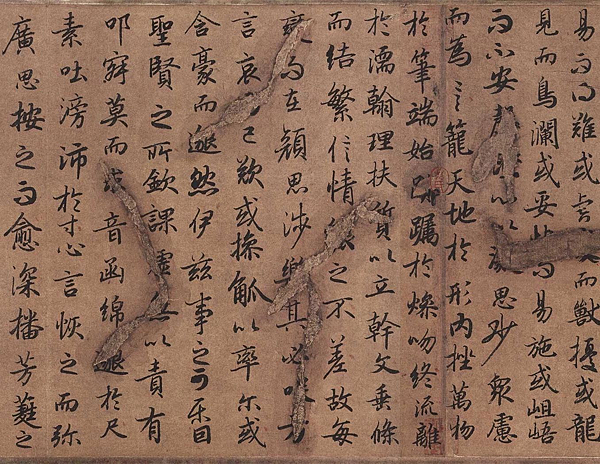 易而得難或而獸擾或龍
見而鳥瀾或妥帖而易施或岨峿
而不安心以思眇衆慮
而為言籠天地於形内挫萬物
於筆端始躑躅於燥吻終流離
於濡翰理扶質以立幹文垂條
而結繁信情之不差故每
變而在顔思涉樂其必方
言哀已歎或操觚以率尒或
含豪而邈然伊兹事之可樂固
聖賢之所欽課虛無以責有
叩寂莫而求音函綿邈於尺
素吐滂沛於寸心言恢之而弥
廣思按之而愈深播芳蕤之